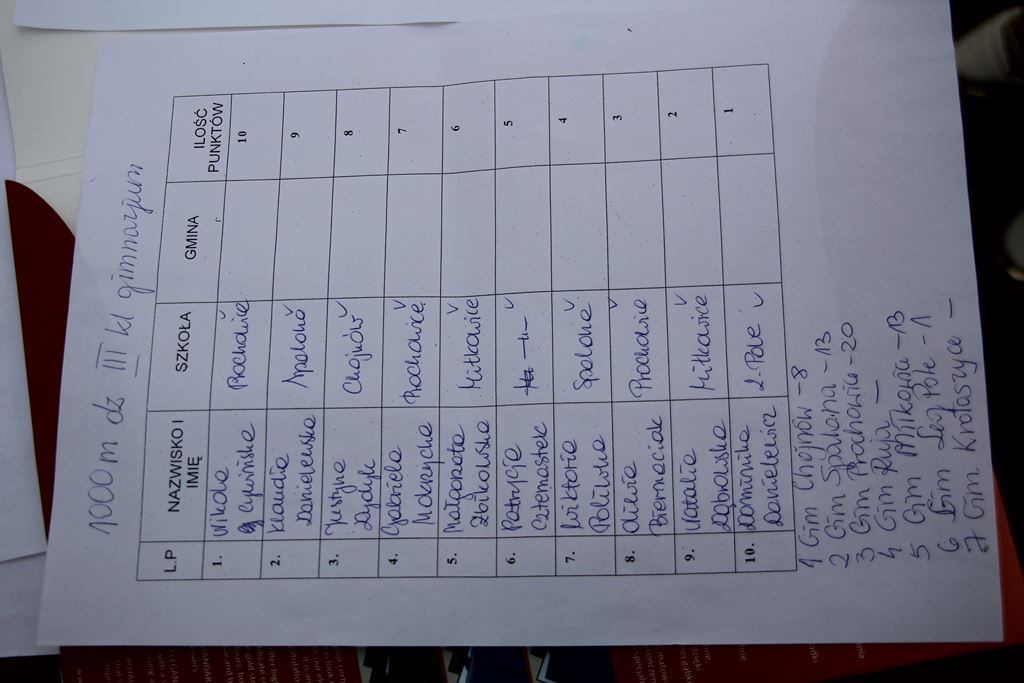 1000m dz III kl gimnazjum
L.P NAZWISKO I IMIĘ SZKOŁA GMINA ILOŚĆ PUNKTÓW
1. Prochowice 10
2. Klaudia Danielewska Spalona 9
3. Justyna Dydyk Chojnów 8
4. Gabriela Prochowice 7
5. Małgorzata Żbikowska Miłkowice 6
6. Patrycja -"- 5
7. Wiktoria Polińska Spalona 4
8. Oliwia Biernaciak Prochowice 3
9. Natalia Dąbrowska Miłkowice 2
10. Dominika Danielewicz L. Pole 1
1 Gim Chojnów - 8
2 Gim Spalona - 13
3 Gim Prochowice - 20
4 Gim Ruja -
5 Gim Miłkowice - 13
6 Gim Leg Pole - 1
7 Gim Krotoszyce -